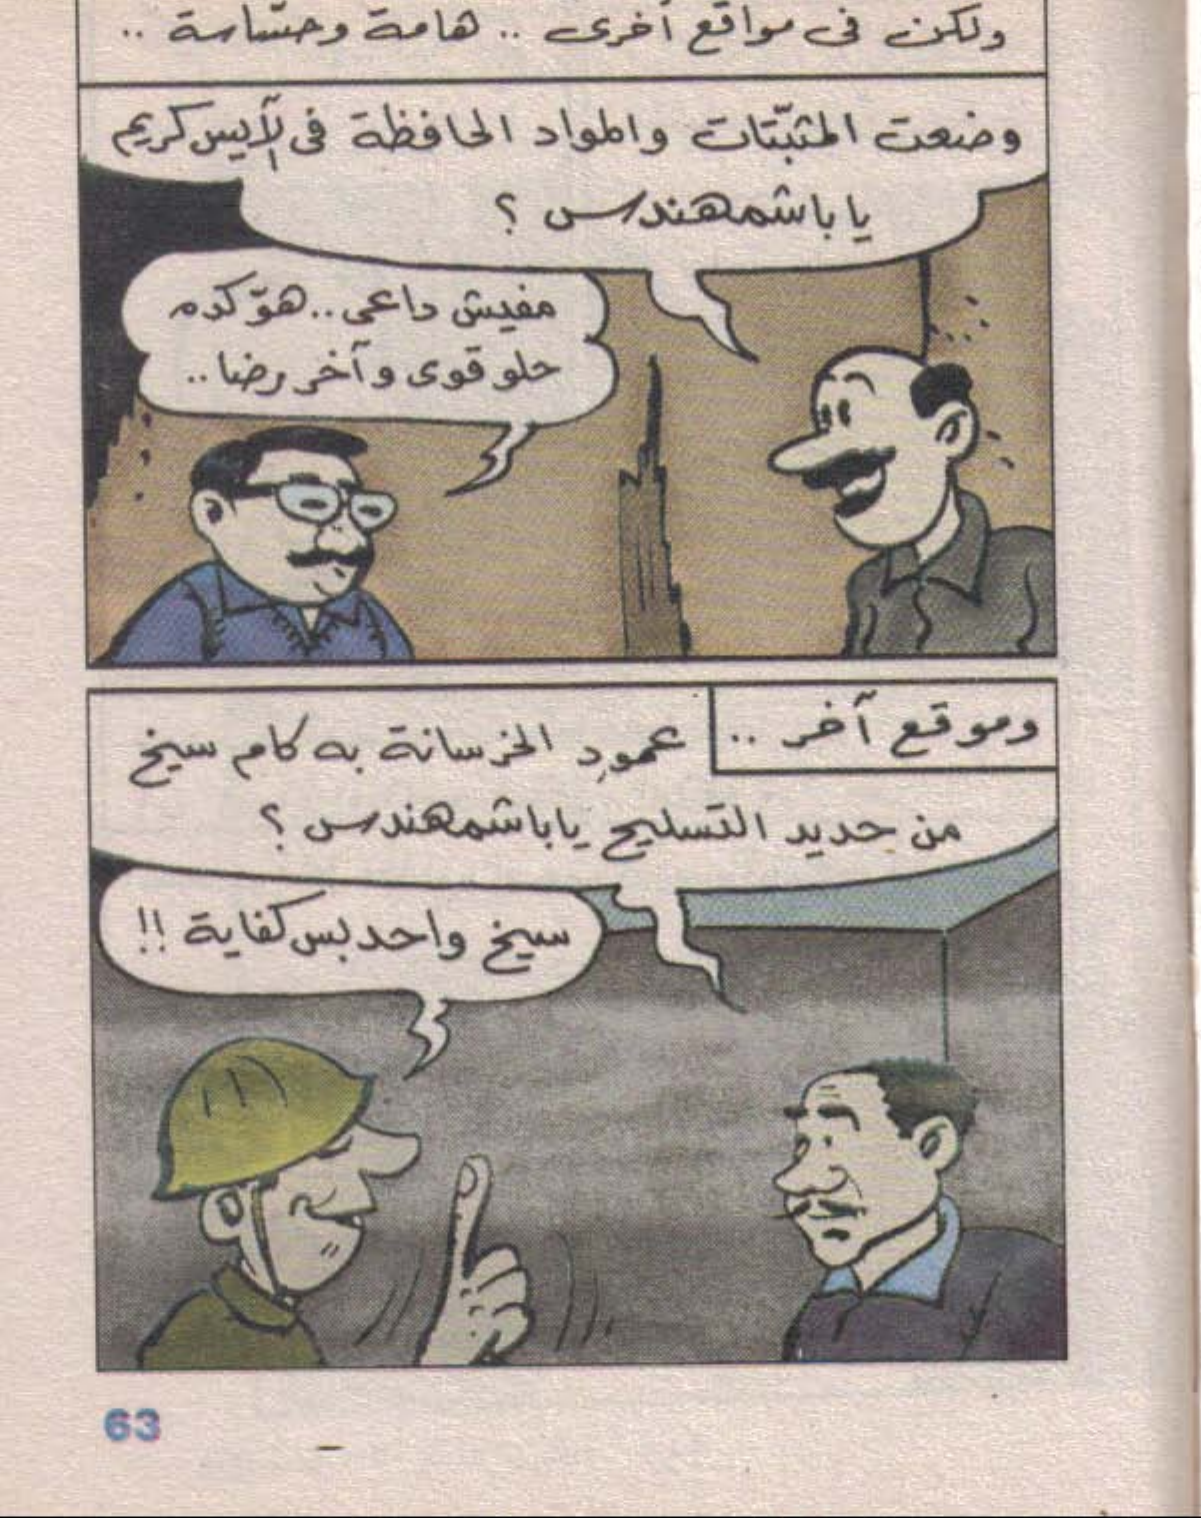 ولكن فى مواقع أخرى .. هامة وحسّاسة ..
وضعت المثبّتات والمواد الحافظة فى الآيس كريم
يا باشمهندس ؟
مفيش داعى .. هوّ كده
حلو قوى وآخر رضا ..
وموقع آخر ..
عمود الخرسانة به كام سيخ
من حديد التسليح يا باشمهندس ؟
سيخ واحد بس كفاية !!
63